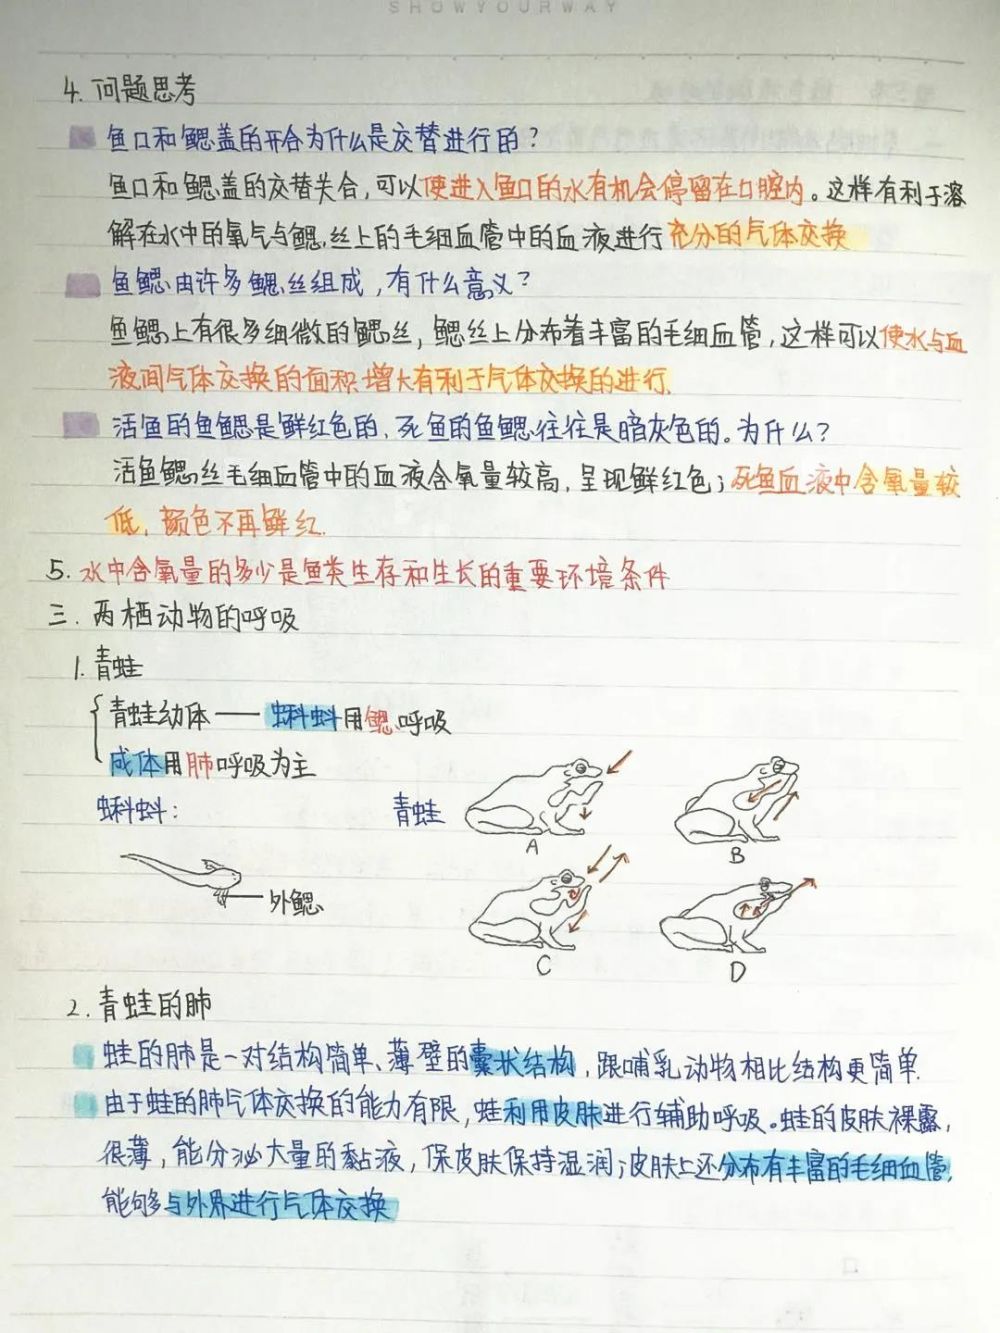 SHOWYOURWAY
4. 问题思考
鱼口和鳃盖的开合为什么是交替进行的?
鱼口和鳃盖的交替关合,可以使进入鱼口的水有机会停留在口腔内。这样有利于溶
解在水中的氧气与鳃丝上的毛细血管中的血液进行充分的气体交换
鱼鳃由许多鳃丝组成,有什么意义?
鱼鳃上有很多细微的鳃丝,鳃丝上分布着丰富的毛细血管,这样可以使水与血
液间气体交换的面积增大有利于气体交换的进行.
活鱼的鱼鳃是鲜红色的、死鱼的鱼鳃往往是暗灰色的。为什么?
活鱼鳃丝毛细血管中的血液含氧量较高,呈现鲜红色;死鱼血液中含氧量较
低,颜色不再鲜红.
5. 水中含氧量的多少是鱼类生存和生长的重要环境条件
三. 两栖动物的呼吸
1. 青蛙
青蛙幼体——蝌蚪用鳃呼吸
成体用肺呼吸为主
蝌蚪: 青蛙
A B
外鳃
C D
2. 青蛙的肺
蛙的肺是一对结构简单、薄壁的囊状结构,跟哺乳动物相比结构更简单.
由于蛙的肺气体交换的能力有限,蛙利用皮肤进行辅助呼吸。蛙的皮肤裸露,
很薄,能分泌大量的黏液,保皮肤保持湿润;皮肤上还分布有丰富的毛细血管,
能够与外界进行气体交换